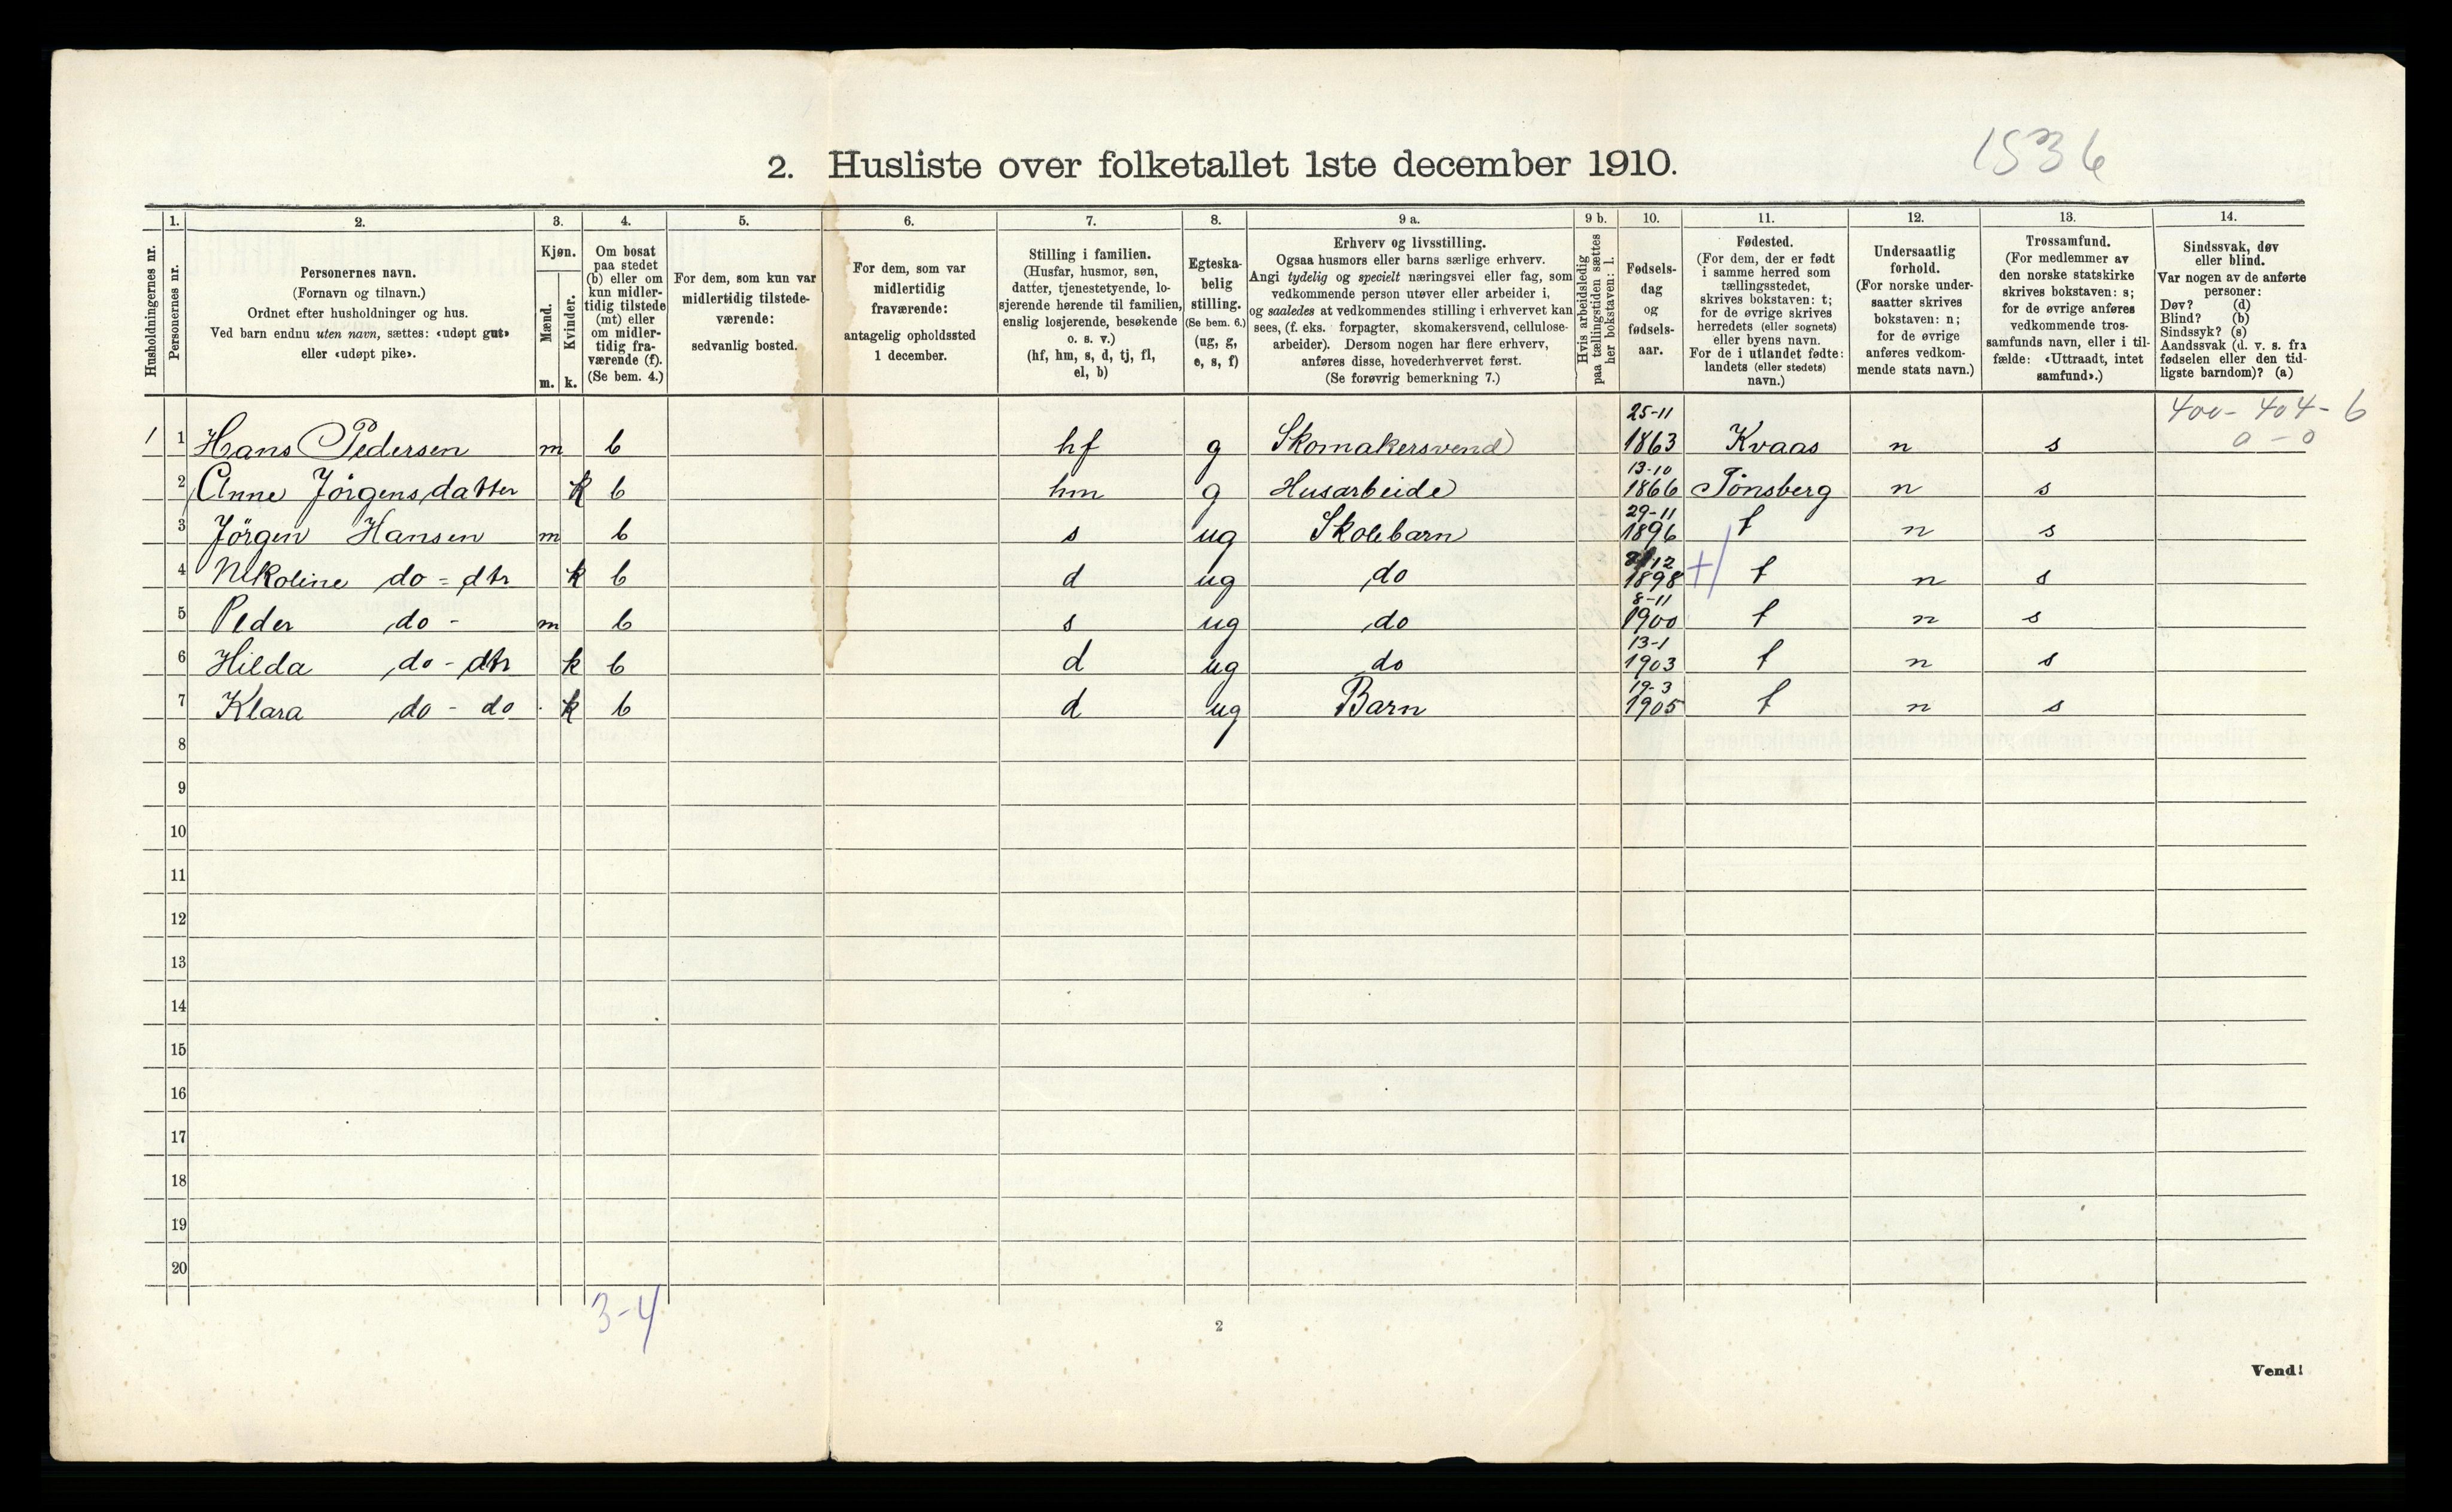 1536
2. Husliste over folketallet 1ste december 1910.
Husholdningernes nr.
1.
Personernes nr.
2.
Personernes navn.
(Fornavn og tilnavn.)
Ordnet efter husholdninger og hus.
Ved barn endnu uten navn, sættes: «udøpt gut»
eller «udøpt pike».
3.
Kjøn.
Mænd.
Kvinder.
m. k.
4.
Om bosat
paa stedet
(b) eller om
kun midler-
tidig tilstede
(mt) eller
om midler-
tidig fra-
værende (f).
(Se bem. 4.)
5.
For dem, som kun var
midlertidig tilstede-
værende:
sedvanlig bosted.
6.
For dem, som var
midlertidig
fraværende:
antagelig opholdssted
1 december.
7.
Stilling i familien.
(Husfar, husmor, søn,
datter, tjenestetyende, lo-
sjerende hørende til familien,
enslig losjerende, besøkende
o. s. v.)
(hf, hm, s, d, tj, fl,
el, b)
8.
Egteska-
belig
stilling.
(Se bem. 6.)
(ug, g,
e, s, f)
9 a.
Erhverv og livsstilling.
Ogsaa husmors eller barns særlige erhverv.
Angi tydelig og specielt næringsvei eller fag, som
vedkommende person utøver eller arbeider i,
og saaledes at vedkommendes stilling i erhvervet kan
sees, (f. eks. forpagter, skomakersvend, cellulose-
arbeider). Dersom nogen har flere erhverv,
anføres disse, hovederhvervet først.
(Se forøvrig bemerkning 7.)
9 b.
Hvis arbeidsledig
paa tællingstiden sættes
her bokstaven: l.
10.
Fødsels-
dag
og
fødsels-
aar.
11.
Fødested.
(For dem, der er født
i samme herred som
tællingsstedet,
skrives bokstaven: t;
for de øvrige skrives
herredets (eller sognets)
eller byens navn.
For de i utlandet fødte:
landets (eller stedets)
navn.)
12.
Undersaatlig
forhold.
(For norske under-
saatter skrives
bokstaven: n;
for de øvrige
anføres vedkom-
mende stats navn.)
13.
Trossamfund.
(For medlemmer av
den norske statskirke
skrives bokstaven: s;
for de øvrige anføres
vedkommende tros-
samfunds navn, eller i til-
fælde: «Uttraadt, intet
samfund».)
14.
Sindssvak, døv
eller blind.
Var nogen av de anførte
personer:
Døv? (d)
Blind? (b)
Sindssyk? (s)
Aandssvak (d. v. s. fra
fødselen eller den tid-
ligste barndom)? (a)
400-404-6
0-0
1 1 Hans Pedersen m b hf g Skomakersvend 25-11 1863 Kvaas n s
2 Anne Jörgensdatter k b hm g Husarbeide 13-10 1866 Tönsberg n s
3 Jörgen Hansen m b s ug Skolebarn 29-11 1896 t n s
4 Nikoline do = dtr k b d ug do 12 1898 t n s
5 Peder do - m b s ug do 8-11 1900 t n s
6 Hilda do - dtr k b d ug do 13-1 1903 t n s
7 Klara do - do k b d ug Barn 19-3 1905 t n s
8
9
10
11
12
13
14
15
16
17
18
19
20
3-4
2
Vend!